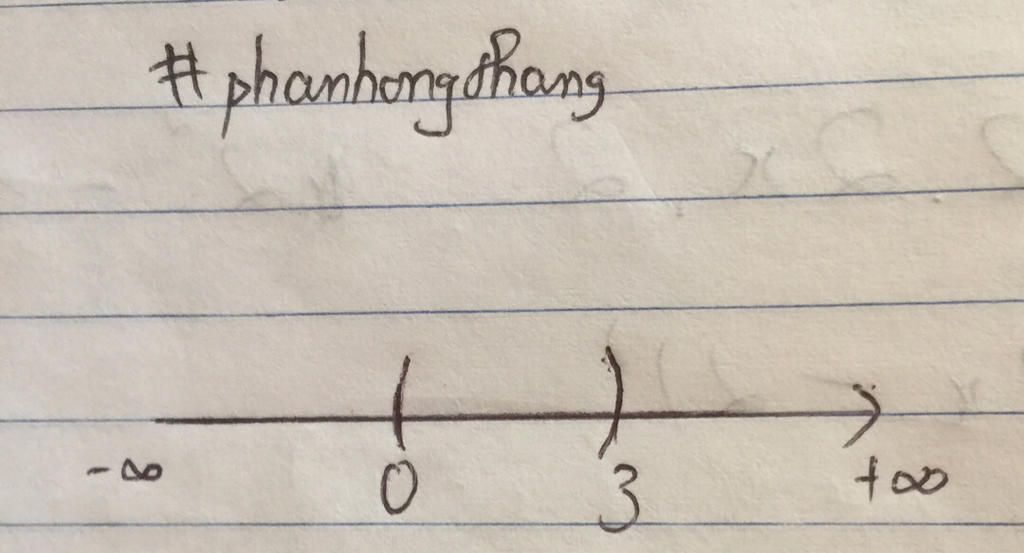 #phanhongthang
( )
-∞ 0 3 +∞